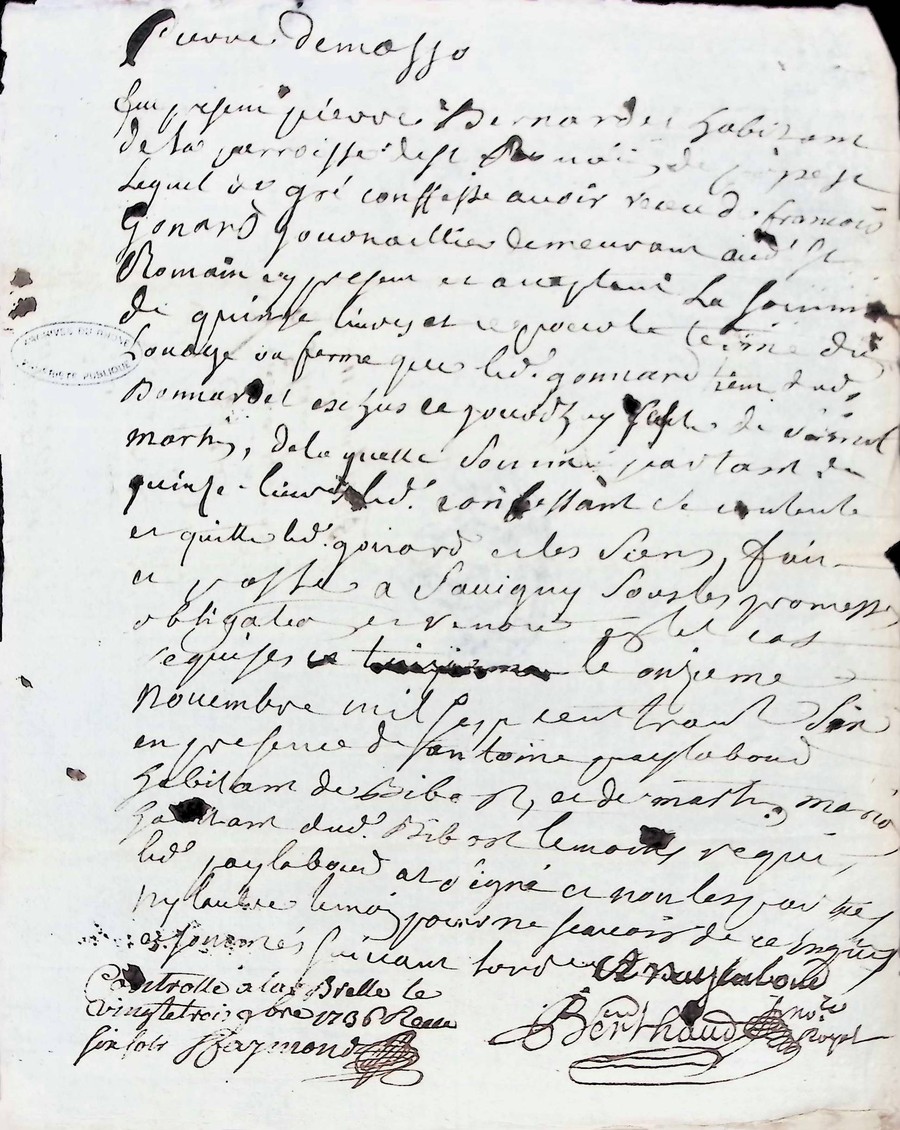 pierre demosso
fut present pierre Bernardet habitant
de la parroisse de st Romain de popest
Lequel de gré confesse avoir receu de françois
Gonard gournaillier demeurant aud. st
Romain cy present et acceptant La somme
de quinze livres et ce pour le terme du
Louage ou ferme que led. gonnard tient dud.
Bonnardet eschus ce jourdhuy feste de saint
martin, de laquelle somme partant de
quinze livres led. confessant se contente
et quitte led. gonard et les siens, fait
et passé a Savigny sous les promesses
obligation et renon et cas
requises ce le onzieme
Novembre mil sept cent trante six
en presence de antoine puylaboud
habitant de Bibost, et de martin
habitant dud. Bibost temoins requis,
led. puylaboud a signé et non les parties
ny lautre temoin pour ne scavoir de ce enquis
et sommés suivant lord A puylaboud
Controllé a la Brelle le
vingt trois 9bre 1736 Receu
six sols Raymond
Berthaud nore Royal
ARCHIVES DU RHONE
PROPRIETE PUBLIQUE